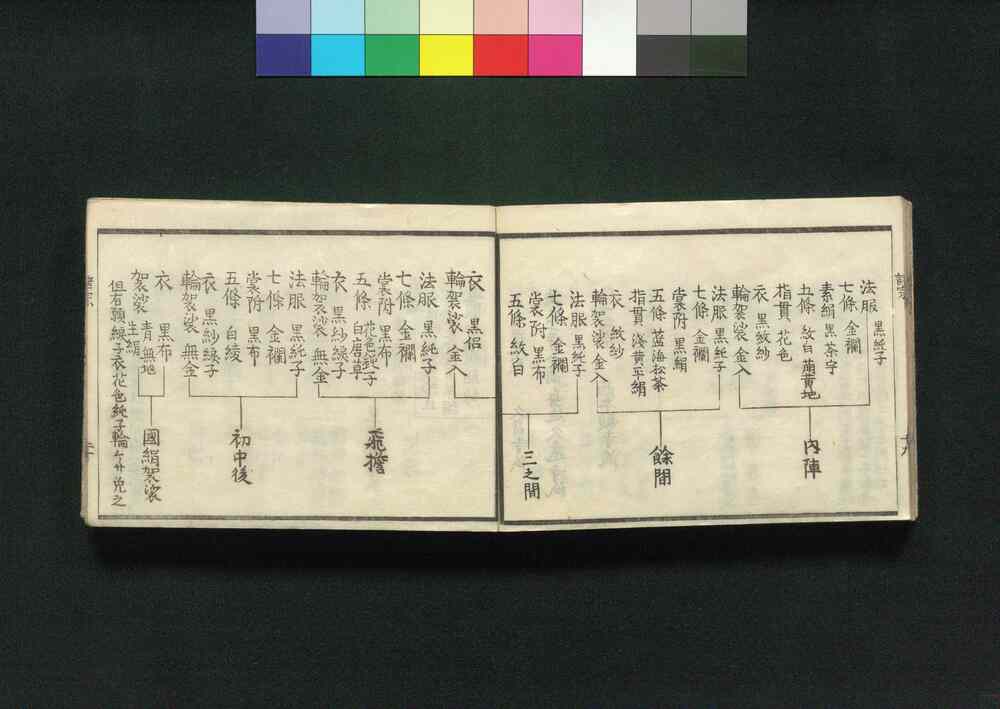 法服 黒純子
七條 金襴
素絹 黒茶字
五條 紋白 萠黄地
指貫 花色
衣 黒紋紗
輪袈裟 金入
内陣
法服 黒純子
七條 金襴
裳附 黒絹
五條 藍海松茶
指貫 浅黄平絹
衣 紋紗
輪袈裟 金入
餘間
法服 黒純子
七條 金襴
裳附 黒布
五條 紋白
衣 黒侶
輪袈裟 金入
三之間
法服 黒純子
七條 金襴
裳附 黒布
五條 花色純子 白唐草
衣 黒紗綾子
輪袈裟 無金
飛擔
法服 黒純子
七條 金襴
裳附 黒布
五條 白綾
衣 黒紗綾子
輪袈裟 無金
初中後
衣 黒布
袈裟 青無地 生絹
國絹袈裟
但有頸綾子衣花色純子輪ケサ免之